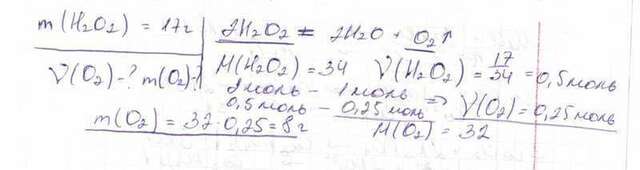 m(H₂O₂) = 17г
2H₂O₂ = 2H₂O + O₂↑
ν(O₂)-? m(O₂)-?
M(H₂O₂) = 34 ν(H₂O₂) = 17/34 = 0,5 моль
2 моль - 1 моль
0,5 моль - 0,25 моль => ν(O₂) = 0,25 моль
m(O₂) = 32·0,25 = 8 г
M(O₂) = 32